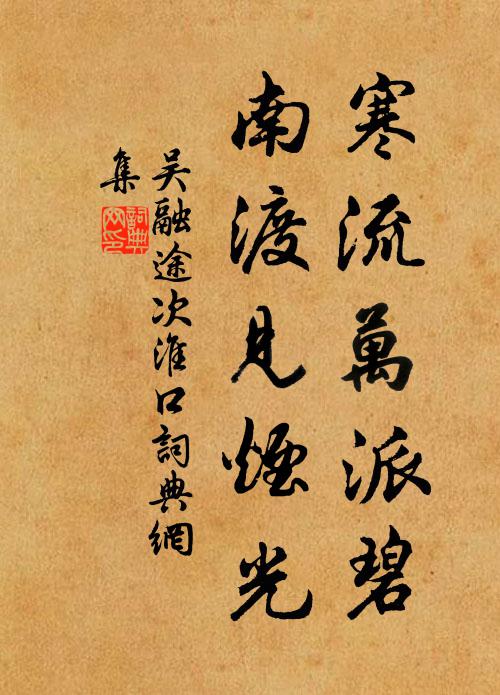 寒流萬派碧
南渡見煙光
吴融途次淮口詞典網
集
詞典網印